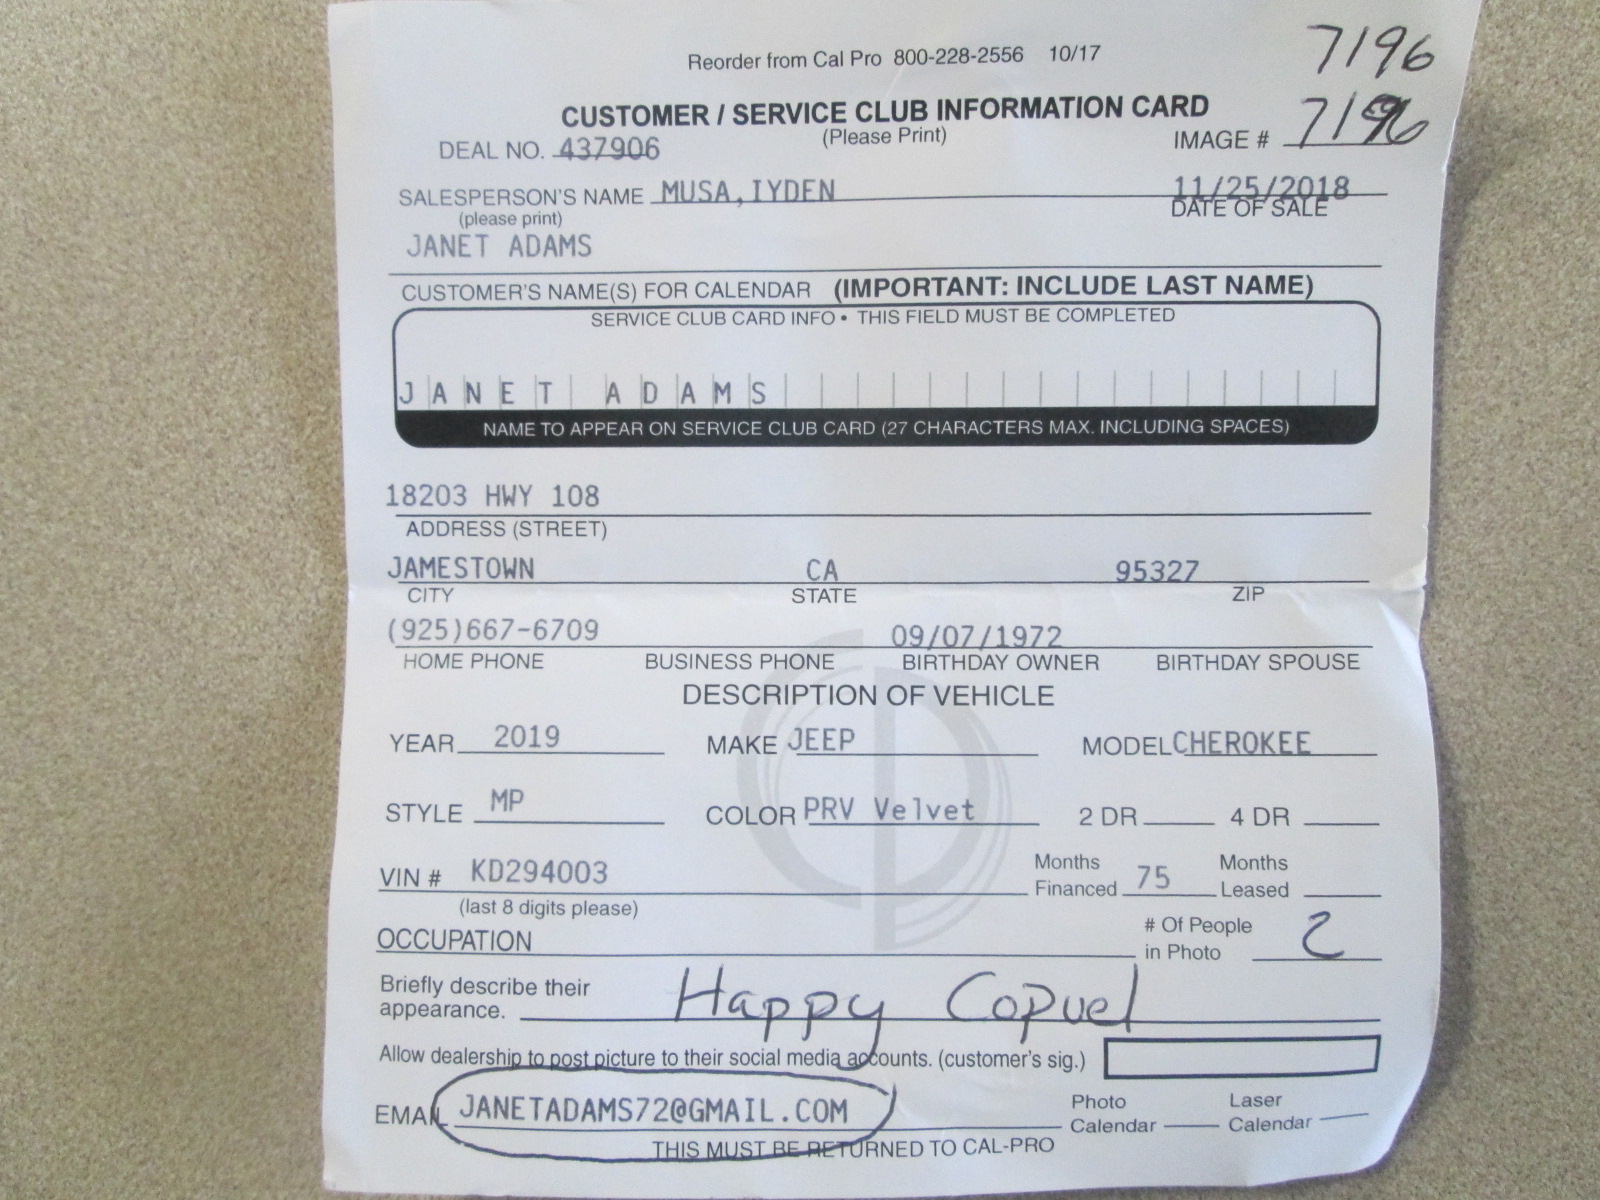 Reorder from Cal Pro 800-228-2556 10/17
7196
CUSTOMER / SERVICE CLUB INFORMATION CARD
(Please Print)
DEAL NO. 437906
IMAGE # 7196
SALESPERSON'S NAME MUSA, IYDEN
(please print)
11/25/2018
DATE OF SALE
JANET ADAMS
CUSTOMER'S NAME(S) FOR CALENDAR (IMPORTANT: INCLUDE LAST NAME)
SERVICE CLUB CARD INFO • THIS FIELD MUST BE COMPLETED
JANET ADAMS
NAME TO APPEAR ON SERVICE CLUB CARD (27 CHARACTERS MAX. INCLUDING SPACES)
18203 HWY 108
ADDRESS (STREET)
JAMESTOWN CA 95327
CITY STATE ZIP
(925)667-6709 09/07/1972
HOME PHONE BUSINESS PHONE BIRTHDAY OWNER BIRTHDAY SPOUSE
DESCRIPTION OF VEHICLE
YEAR 2019 MAKE JEEP MODEL CHEROKEE
STYLE MP COLOR PRV Velvet 2 DR 4 DR
VIN # KD294003 Months Financed 75 Months Leased
(last 8 digits please)
OCCUPATION # Of People in Photo 2
Briefly describe their appearance. Happy Copuel
Allow dealership to post picture to their social media accounts. (customer's sig.)
EMAIL JANETADAMS72@GMAIL.COM Photo Calendar Laser Calendar
THIS MUST BE RETURNED TO CAL-PRO